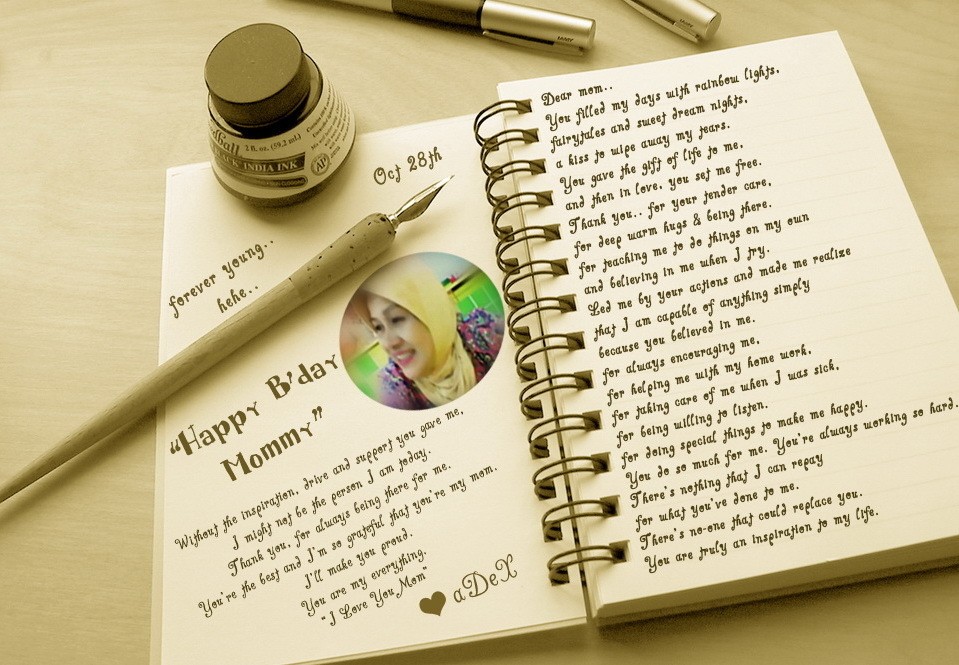 2 fl. oz. (59.2 ml.)
INDIA INK
AP
Oct 28th
forever young..
hehe..
"Happy B'day
Mommy"
Without the inspiration, drive and support you gave me,
I might not be the person I am today.
Thank you, for always being there for me.
You're the best and I'm so grateful that you're my mom.
I'll make you proud.
You are my everything.
"I Love You Mom"
aDeX
Dear mom..
You filled my days with rainbow lights,
fairytales and sweet dream nights,
a kiss to wipe away my tears.
You gave the gift of life to me,
and then in love, you set me free.
Thank you.. for your tender care,
for deep warm hugs & being there.
for teaching me to do things on my own
and believing in me when I try.
Led me by your actions and made me realize
that I am capable of anything simply
because you believed in me.
for always encouraging me,
for helping me with my home work,
for taking care of me when I was sick,
for being willing to listen.
for doing special things to make me happy.
You do so much for me. You're always working so hard.
There's nothing that I can repay
for what you've done to me.
There's no-one that could replace you.
You are truly an inspiration to my life.